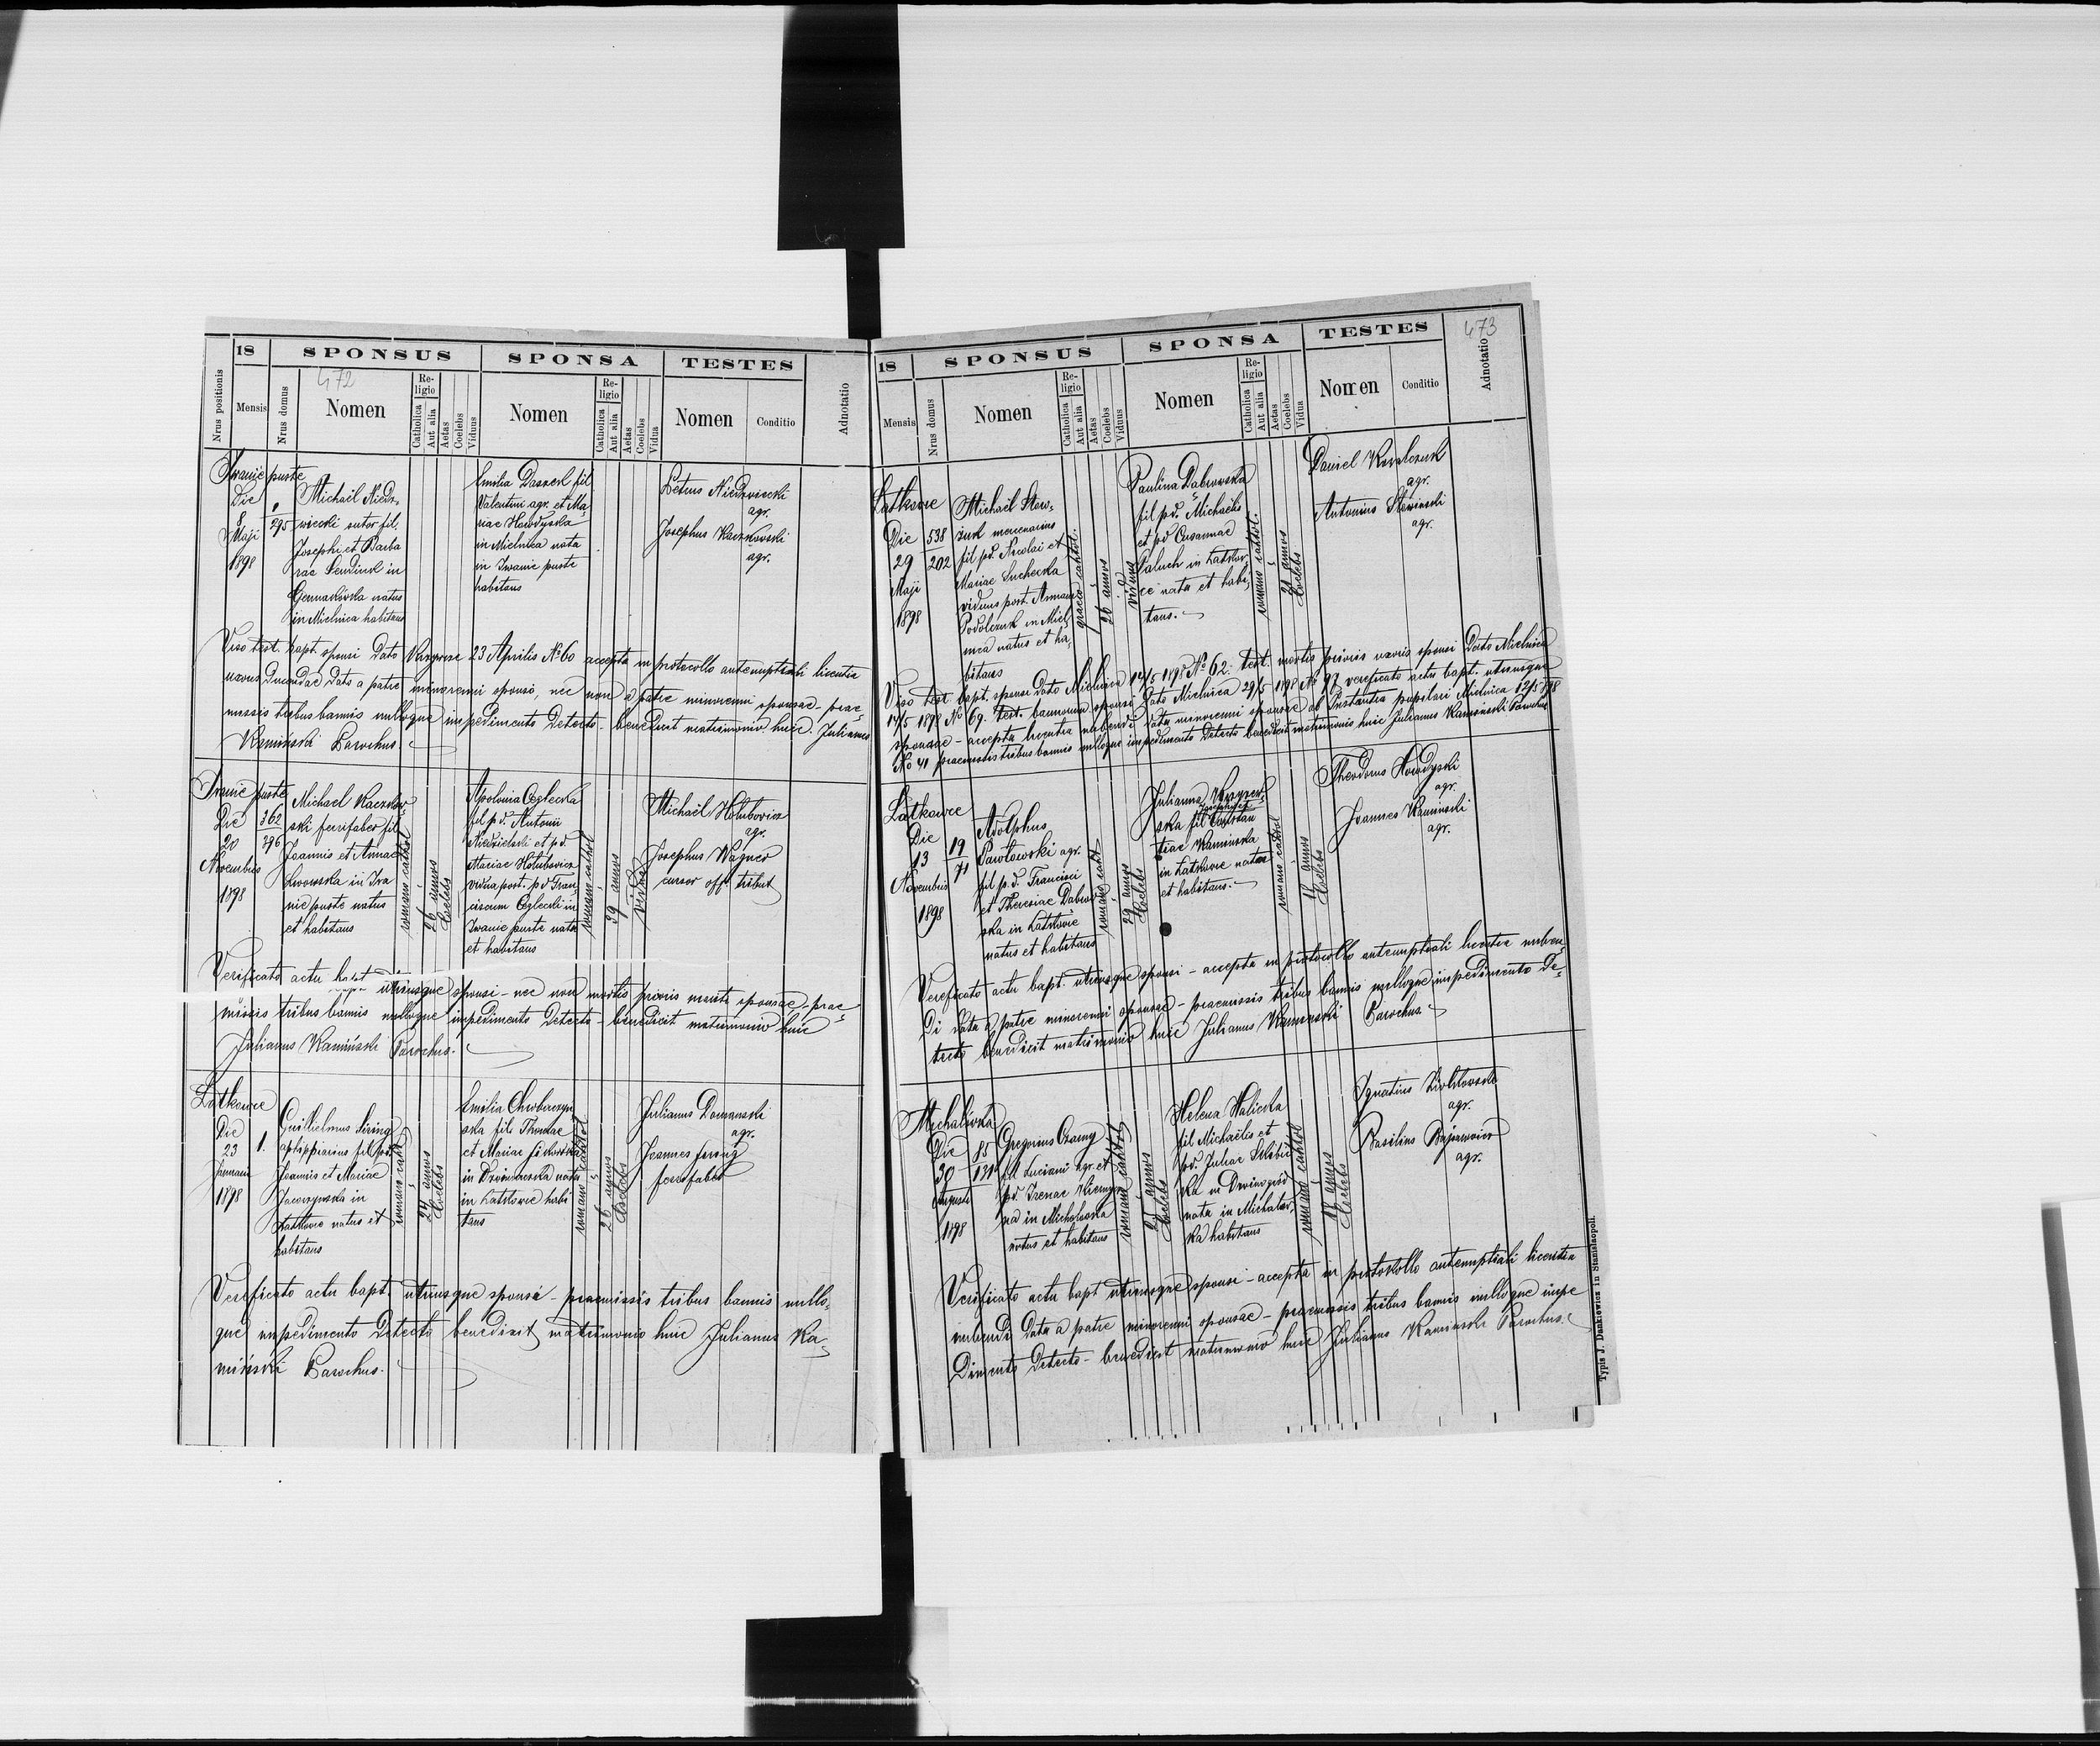 472
18
SPONSUS
SPONSA
TESTES
Nrus positionis
Mensis
Nrus domus
Nomen
Religio
Catholica
Aut alia
Aetas
Coelebs
Viduus
Nomen
Religio
Catholica
Aut alia
Aetas
Coelebs
Vidua
Nomen
Conditio
Adnotatio
Iwanie puste
Die
8
Maji
1898
295
Michaël Niedz-
wiecki sutor fil.
Josephi et Barba
rae in
Germakówka natus
in Mielnica habitans
Emilia fil
Valentini agr. et Ma-
riae Howdyska
in Mielnica nata
in Iwanie puste
habitans
Petrus Niedzwiecki
agr.
Josephus Kaczkowski
agr.
Viso test. bapt. sponsi dato 23 Aprilis No 60 accepta in protocollo antenuptiali licentia
uxoris ducendae data a patre minorenni sponsi, nec non a patre minorenni sponsae - prae-
missis tribus bannis nulloque impedimento detecto - benedixit matrimonio huic. Julianus
Kamiński Parochus.
Iwanie puste
Die
20
Novembris
1898
362
296
Michael Kaczkow-
ski ferrifaber fil
Joannis et Annae
Lwowska in Iwa
nie puste natus
et habitans
romano cathol
26 annos
Coelebs
Apolonia Ceglecka
fil pd. Antonii
Niedzielski et pd.
Mariae Holubowicz
vidua post. pd Fran-
ciscum Ceglecki in
Iwanie puste nata
et habitans
romano cathol
39 annos
vidua
Michaël Holubowicz
agr.
Josephus Wagner
cursor off. tribut
Verificato actu bapt. utriusque sponsi - nec non mortis prioris mariti sponsae - prae-
missis tribus bannis nulloque impedimento detecto - benedixit matrimonio huic
Julianus Kamiński Parochus.
Latkowce
Die
23
Januarii
1898
1.
Guilhelmus Firing
fil pd.
Joannis et Mariae
in
Latkowce natus et
habitans
romano cath
24 annos
Coelebs
Emilia
ska fil. Thomae
et Mariae
in Dzwinaczka nata
in Latkowce habi
tans
romano cathol
26 annos
Coelebs
Julianus Domanski
agr.
Joannes Firing
ferrifaber
Verificato actu bapt. utriusque sponsi - praemissis tribus bannis nullo-
que impedimento detecto benedixit matrimonio huic Julianus Ka-
miński Parochus.
473
18
SPONSUS
SPONSA
TESTES
Mensis
Nrus domus
Nomen
Religio
Catholica
Aut alia
Aetas
Coelebs
Viduus
Nomen
Religio
Catholica
Aut alia
Aetas
Coelebs
Vidua
Nomen
Conditio
Adnotatio
Latkowce
Die
29
Maji
1898
538
202
Michaël
mercenarius
fil pd. Nicolai et
Mariae Suchecka
viduus post. Annam
Podolczuk in Miel
nica natus et ha-
bitans
graeco cathol.
26 annos
viduus
Paulina Dabrowska
fil pd. Michaelis
et pd Susannae
Paluch in Latkow-
ce nata et habi-
tans.
romano cathol.
21 annos
Coelebs
Daniel Kowalczuk
agr.
Antonius
agr.
Viso test. bapt. sponsi dato Mielnica 14/5 1898 No 62. test. mortis prioris uxoris sponsi dato Mielnica
14/5 1898 No 69. test. bannorum sponsi dato Mielnica 29/5 1898 No 97 verificato actu bapt. utriusque
sponsae - accepta licentia nubendi data minorenni sponsae ab Instantia pupilari Mielnica 12/5 1898
No 41 praemissis tribus bannis nulloque impedimento detecto benedixit matrimonio huic Julianus Kamiński Parochus
Latkowce
Die
13
Novembris
1898
19
71
Adolphus
Pawłowski agr.
fil p. d. Francisci
et Theresiae Dabrow
ska in Latkowce
natus et habitans
romano cath.
29 annos
Coelebs
Julianna
ska fil
tiae Kaminska
in Latkowce nata
et habitans.
romano cathol
18 annos
Coelebs
Theodorus Howdyski
agr.
Joannes Kaminski
agr.
Verificato actu bapt. utriusque sponsi - accepta in protocollo antenuptiali licentia nuben-
di data a patre minorenni sponsae - praemissis tribus bannis nulloque impedimento de-
tecto benedixit matrimonio huic Julianus Kaminski Parochus.
Michalówka
Die
30
Augusti
1898
85
131
Gregorius Czarny
fil Luciani agr. et
pd. Irenae
in Michalowka
natus et habitans
romano cathol
annos
Coelebs
Helena Halicka
fil Michaëlis et
pd. Juliae
ka in Dzwinogrod
nata in Michalow-
ka habitans
romano cathol
18 annos
Coelebs
Ignatius
agr.
Basilius
agr.
Verificato actu bapt utriusque sponsi - accepta in protokollo antenuptiali licentia
nubendi data a patre minorenni sponsae - praemissis tribus bannis nulloque impe
dimento detecto - benedixit matrimonio huic Julianus Kaminski Parochus.
Typis J. Dankiewicz in Stanislaopoli.